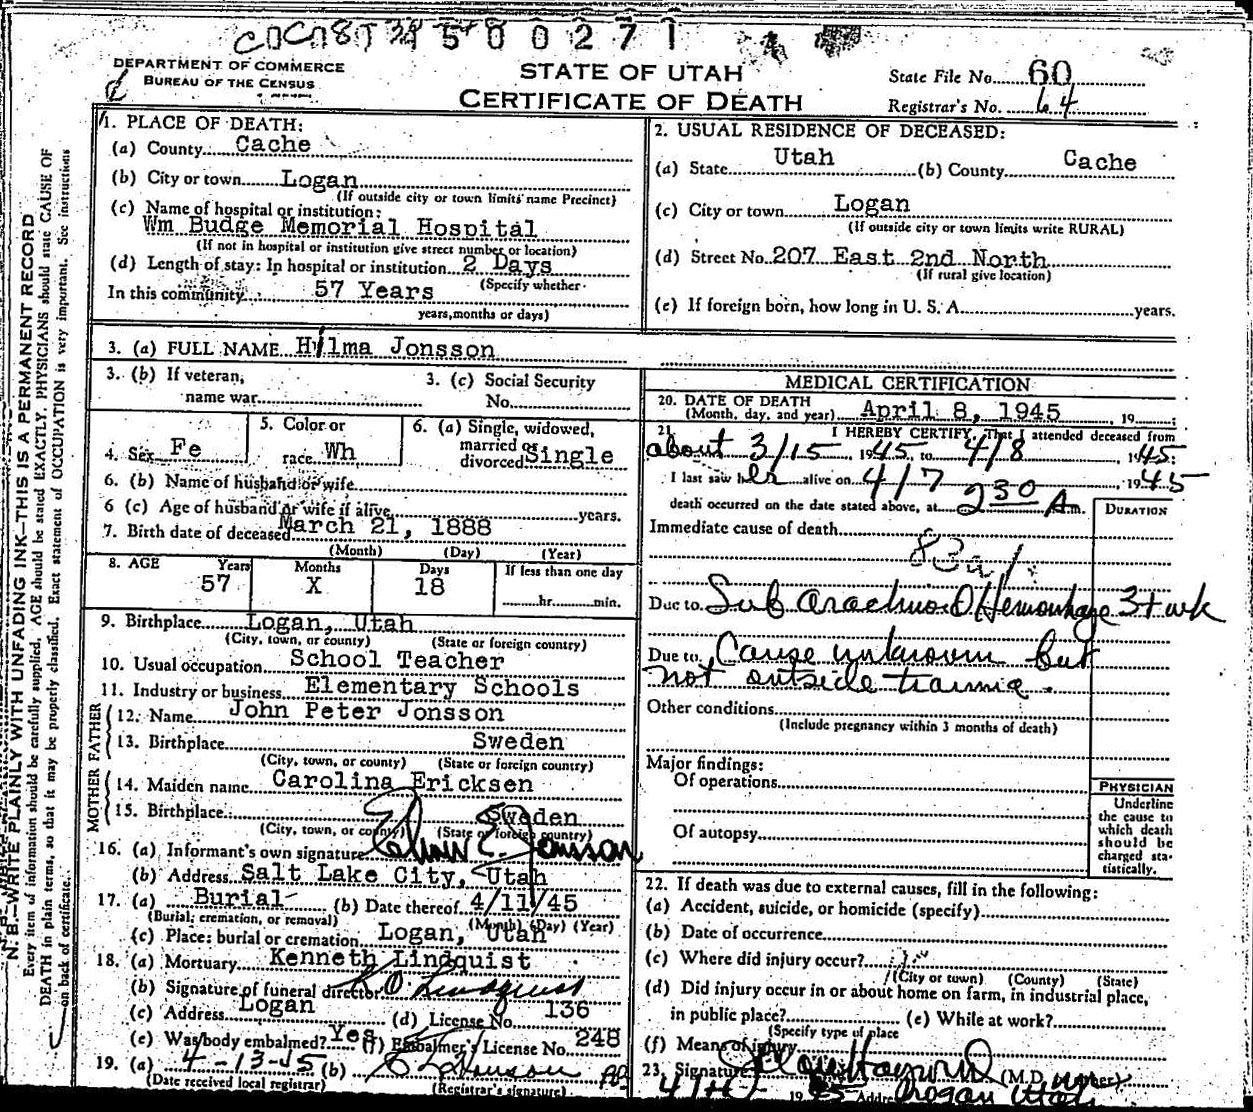 500271
DEPARTMENT OF COMMERCE
BUREAU OF THE CENSUS
STATE OF UTAH
CERTIFICATE OF DEATH
State File No. 60
Registrar's No. 64
N. B.—WRITE PLAINLY WITH UNFADING INK—THIS IS A PERMANENT RECORD
Every item of information should be carefully supplied. AGE should be stated EXACTLY. PHYSICIANS should state CAUSE OF
DEATH in plain terms, so that it may be properly classified. Exact statement of OCCUPATION is very important. See instructions
on back of certificate.
1. PLACE OF DEATH:
(a) County Cache
(b) City or town Logan
(If outside city or town limits name Precinct)
(c) Name of hospital or institution:
Wm Budge Memorial Hospital
(If not in hospital or institution give street number or location)
(d) Length of stay: In hospital or institution 2 Days
(Specify whether
In this community 57 Years
years, months or days)
2. USUAL RESIDENCE OF DECEASED:
(a) State Utah (b) County Cache
(c) City or town Logan
(If outside city or town limits write RURAL)
(d) Street No. 207 East 2nd North
(If rural give location)
(e) If foreign born, how long in U. S. A. years.
3. (a) FULL NAME Hilma Jonsson
3. (b) If veteran, name war
3. (c) Social Security No.
4. Sex Fe
5. Color or race Wh
6. (a) Single, widowed, married or divorced Single
6. (b) Name of husband or wife
6 (c) Age of husband or wife if alive years.
7. Birth date of deceased March 21, 1888
(Month) (Day) (Year)
8. AGE Years Months Days If less than one day
57 X 18 hr. min.
9. Birthplace Logan, Utah
(City, town, or county) (State or foreign country)
10. Usual occupation School Teacher
11. Industry or business Elementary Schools
FATHER
12. Name John Peter Jonsson
13. Birthplace Sweden
(City, town, or county) (State or foreign country)
MOTHER
14. Maiden name Carolina Ericksen
15. Birthplace Sweden
(City, town, or county) (State or foreign country)
16. (a) Informant's own signature
(b) Address Salt Lake City, Utah
17. (a) Burial (b) Date thereof 4/11/45
(Burial, cremation, or removal) (Month) (Day) (Year)
(c) Place: burial or cremation Logan, Utah
18. (a) Mortuary Kenneth Lindquist
(b) Signature of funeral director K O Lindquist
(c) Address Logan (d) License No. 136
(e) Was body embalmed? Yes (f) Embalmer's License No. 248
19. (a) 4-13-45 (b)
(Date received local registrar) (Registrar's signature)
MEDICAL CERTIFICATION
20. DATE OF DEATH
(Month, day, and year) April 8, 1945 19
21. I HEREBY CERTIFY, That I attended deceased from
about 3/15, 1945, to 4/8, 1945;
I last saw her alive on 4/7, 1945
death occurred on the date stated above, at 2 30 A.m.
DURATION
Immediate cause of death
83a
Due to Sub arachnoid Hemorrhage 3+ wk
Due to Cause unknown but
not outside trauma.
Other conditions
(Include pregnancy within 3 months of death)
Major findings:
Of operations
Of autopsy
PHYSICIAN
Underline
the cause to
which death
should be
charged sta-
tistically.
22. If death was due to external causes, fill in the following:
(a) Accident, suicide, or homicide (specify)
(b) Date of occurrence
(c) Where did injury occur?
(City or town) (County) (State)
(d) Did injury occur in or about home on farm, in industrial place,
in public place? (e) While at work?
(Specify type of place
(f) Means of injury
23. Signature (M.D. or other)
1945 Address Logan Utah